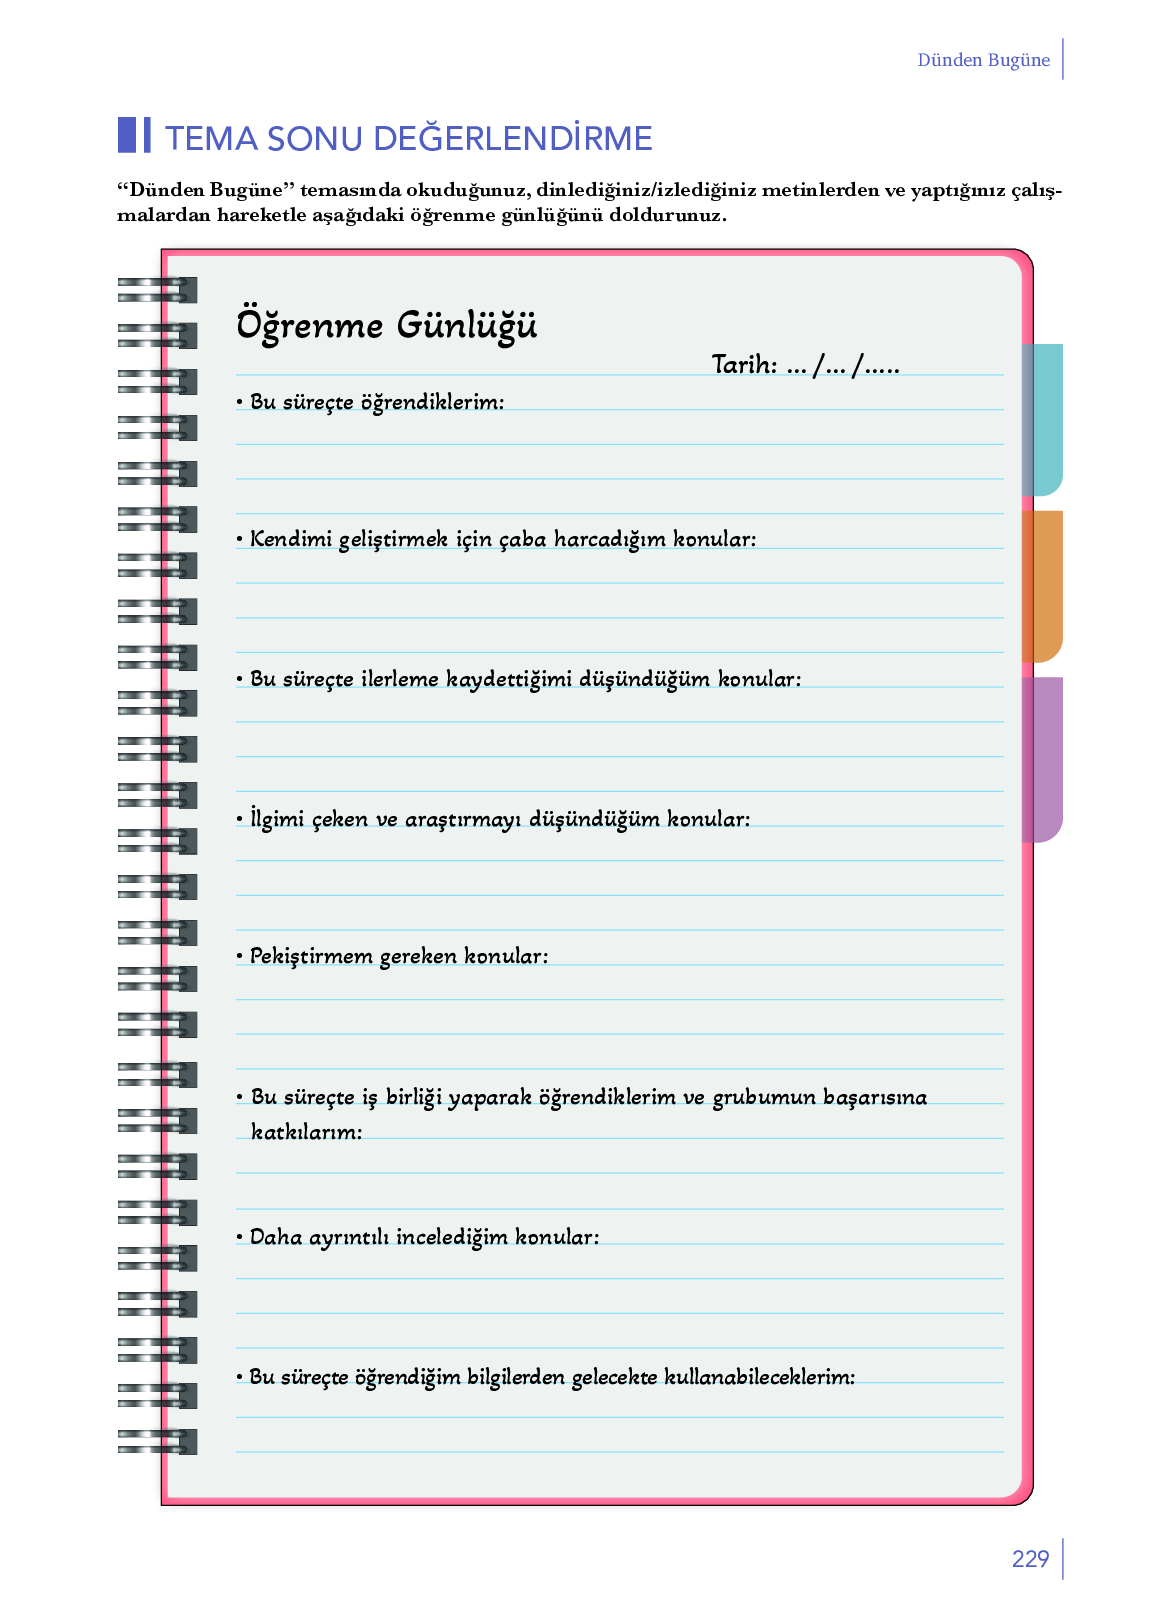 Dünden Bugüne
TEMA SONU DEĞERLENDİRME
“Dünden Bugüne” temasında okuduğunuz, dinlediğiniz/izlediğiniz metinlerden ve yaptığınız çalış-
malardan hareketle aşağıdaki öğrenme günlüğünü doldurunuz.
Öğrenme Günlüğü
Tarih: ... /... /.....
• Bu süreçte öğrendiklerim:
• Kendimi geliştirmek için çaba harcadığım konular:
• Bu süreçte ilerleme kaydettiğimi düşündüğüm konular:
• İlgimi çeken ve araştırmayı düşündüğüm konular:
• Pekiştirmem gereken konular:
• Bu süreçte iş birliği yaparak öğrendiklerim ve grubumun başarısına
katkılarım:
• Daha ayrıntılı incelediğim konular:
• Bu süreçte öğrendiğim bilgilerden gelecekte kullanabileceklerim:
229